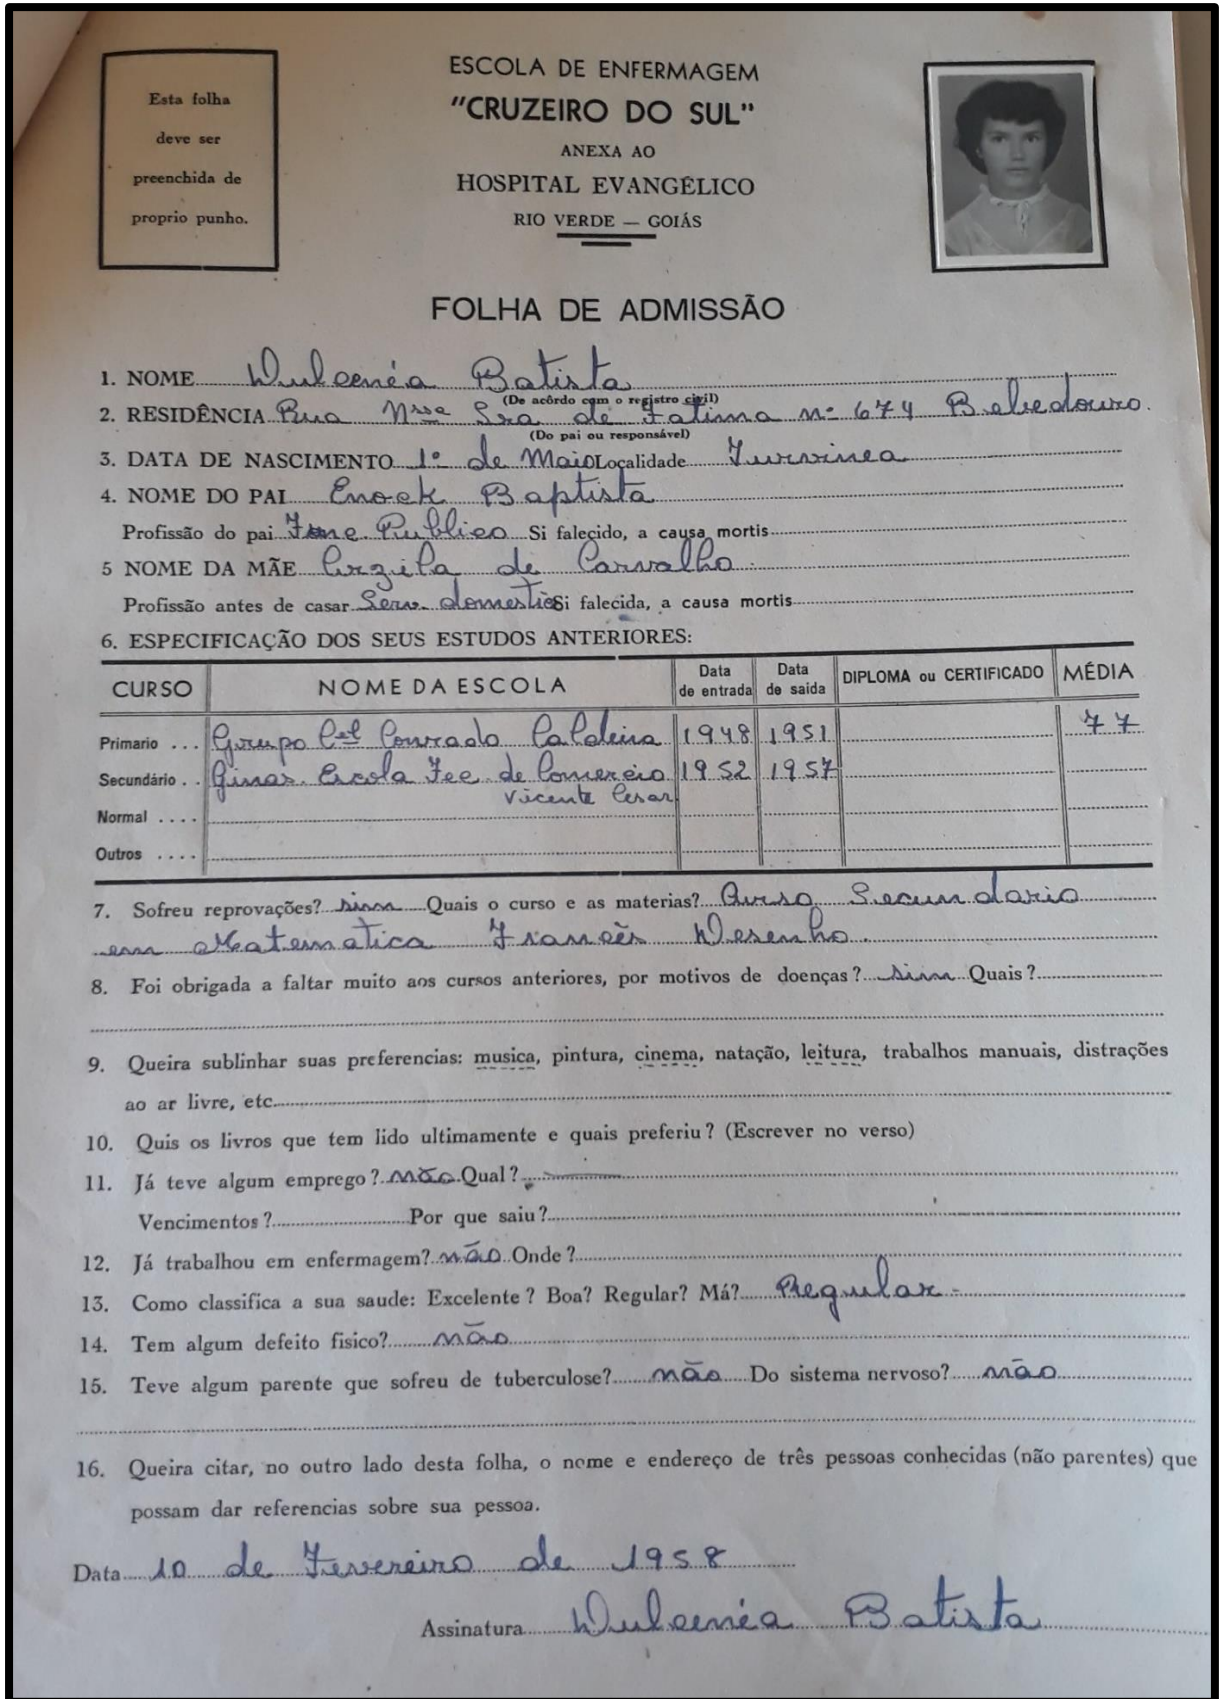 Esta folha
deve ser
preenchida de
proprio punho.
ESCOLA DE ENFERMAGEM
"CRUZEIRO DO SUL"
ANEXA AO
HOSPITAL EVANGÉLICO
RIO VERDE — GOIÁS
FOLHA DE ADMISSÃO
1. NOME Dulcenéa Batista
(De acôrdo com o registro civil)
2. RESIDÊNCIA Rua Nssa Sra de Fatima nº 674 Bebedouro.
(Do pai ou responsável)
3. DATA DE NASCIMENTO 1º de Maio Localidade
4. NOME DO PAI Enock Baptista
Profissão do pai Publico Si falecido, a causa mortis
5 NOME DA MÃE de Carvalho
Profissão antes de casar Serv. domestico Si falecida, a causa mortis
6. ESPECIFICAÇÃO DOS SEUS ESTUDOS ANTERIORES:
CURSO NOME DA ESCOLA Data de entrada Data de saida DIPLOMA ou CERTIFICADO MÉDIA
Primario ... Grupo Cel Conrado Caldeira 1948 1951 77
Secundário .. Ginas. Escola Tec. de Comercio 1952 1957
Vicente Cesar
Normal ....
Outros ....
7. Sofreu reprovações? sim Quais o curso e as materias? Curso Secundario
em Matematica Francês Desenho.
8. Foi obrigada a faltar muito aos cursos anteriores, por motivos de doenças? sim Quais?
9. Queira sublinhar suas preferencias: musica, pintura, cinema, natação, leitura, trabalhos manuais, distrações
ao ar livre, etc.
10. Quis os livros que tem lido ultimamente e quais preferiu? (Escrever no verso)
11. Já teve algum emprego? não Qual?
Vencimentos? Por que saiu?
12. Já trabalhou em enfermagem? não Onde?
13. Como classifica a sua saude: Excelente? Boa? Regular? Má? Regular -
14. Tem algum defeito fisico? não
15. Teve algum parente que sofreu de tuberculose? não Do sistema nervoso? não
16. Queira citar, no outro lado desta folha, o nome e endereço de três pessoas conhecidas (não parentes) que
possam dar referencias sobre sua pessoa.
Data 10 de Fevereiro de 1958
Assinatura Dulcenéa Batista